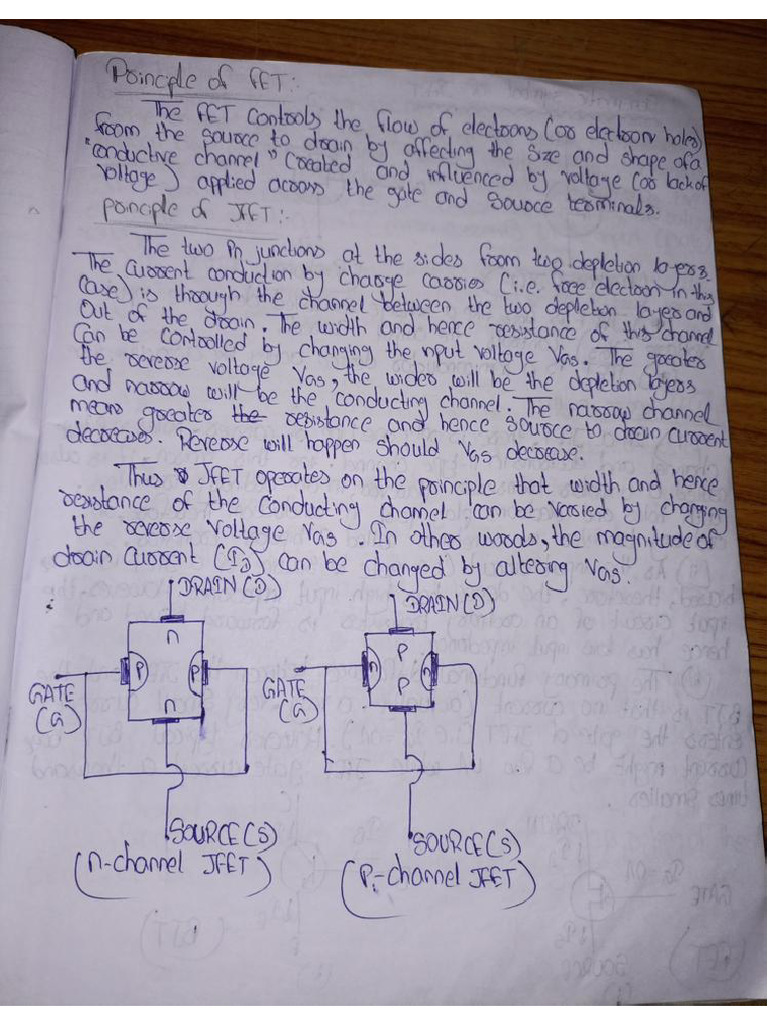 Principle of FET:-
The FET controls the flow of electrons (or electron holes)
from the source to drain by affecting the size and shape of a
"conductive channel" (created and influenced by voltage (or lack of
voltage) applied across the gate and source terminals.
principle of JFET:-
The two Pn junctions at the sides from two depletion layers.
The current conduction by charge carries (i.e. free electron in this
case) is through the channel between the two depletion layers and
Out of the drain. The width and hence resistance of this channel
can be controlled by changing the nput voltage VGS. The greater
the reverse voltage VGS, the wider will be the depletion layers
and narrow will be the conducting channel. The narrow channel
means greater the resistance and hence source to drain current
decreases. Reverse will happen should VGS decrease.
Thus JFET operates on the principle that width and hence
resistance of the conducting channel can be varied by changing
the reverse voltage VGS. In other words, the magnitude of
drain current (ID) can be changed by altering VGS.
DRAIN (D)
n
P P
n
GATE
(G)
SOURCE (S)
(n-channel JFET)
DRAIN (D)
P
n n
P
GATE
(G)
SOURCE (S)
(P-channel JFET)